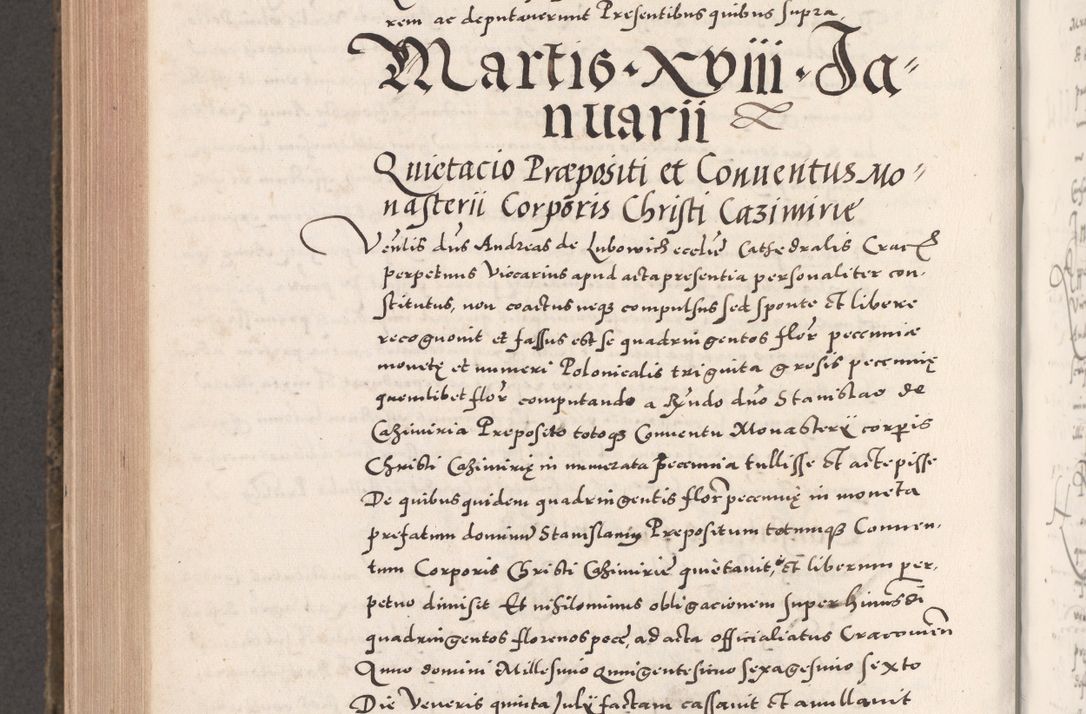 rem ac deputaverunt Presentibus quibus supra.
Martis · Xviii · Ja-
nuarii
Quietacio Præpositi et Conventus Mo-
nasterii Corporis Christi Cazimirie
Venlis dns Andreas de Lubowich ecclie Cathedralis Crac
perpetuus Viccarius apud acta presentia personaliter con-
stitutus, non coactus neque compulsus sed sponte et libere
recognovit et fassus est se quadringentos flor peccuniæ
monetę et numeri Polonicalis triginta grosis peccunię
quemlibet flor computando a Rndo dno Stanislao de
Cazimiria Preposito totoque Conventu Monasterii corpris
Christi Cazimirię in numerata peccunia tullisse et accepisse
De quibus quidem quadringentis flor peccunię in moneta
prefatum dominum Stanislaum Præpositum totumque Conven-
tum Corporis Christi Cazimirie quietavit, et liberum per-
petuo dimisit Et nihilominus obligacionem super hmusdi
quadringentos florenos pocę, ad acta officialiatus Cracovien
Anno domini Millesimo quingentesimo sexagesimo sexto
Die Veneris quinta July factam cassavit et annullavit